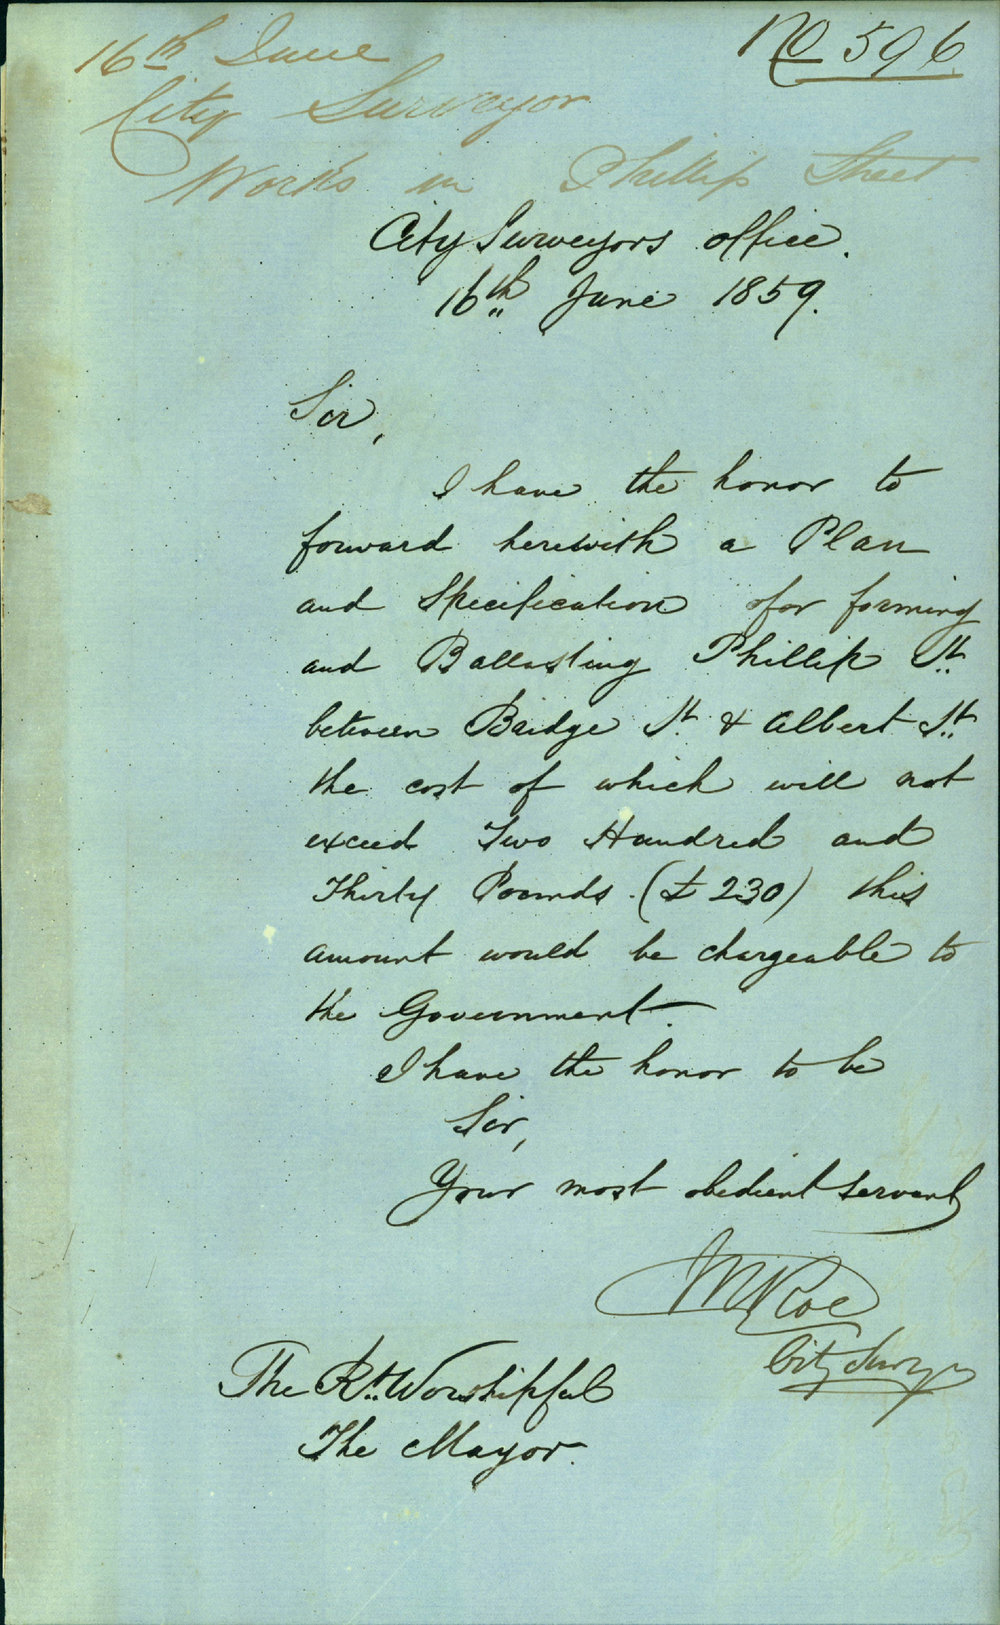 No 596
16th June
City Surveyor
Works in Phillip Street
City Surveyors office.
16th June 1859.
Sir,
I have the honor to
forward herewith a Plan
and Specification for forming
and Ballasting Phillip St.
between Bridge St. & Albert St.
the cost of which will not
exceed Two Hundred and
Thirty Pounds (£230) this
amount would be chargeable to
the Government.
I have the honor to be
Sir,
Your most obedient servant
Roe
City Survyr
The Rt. Worshipful
The Mayor.